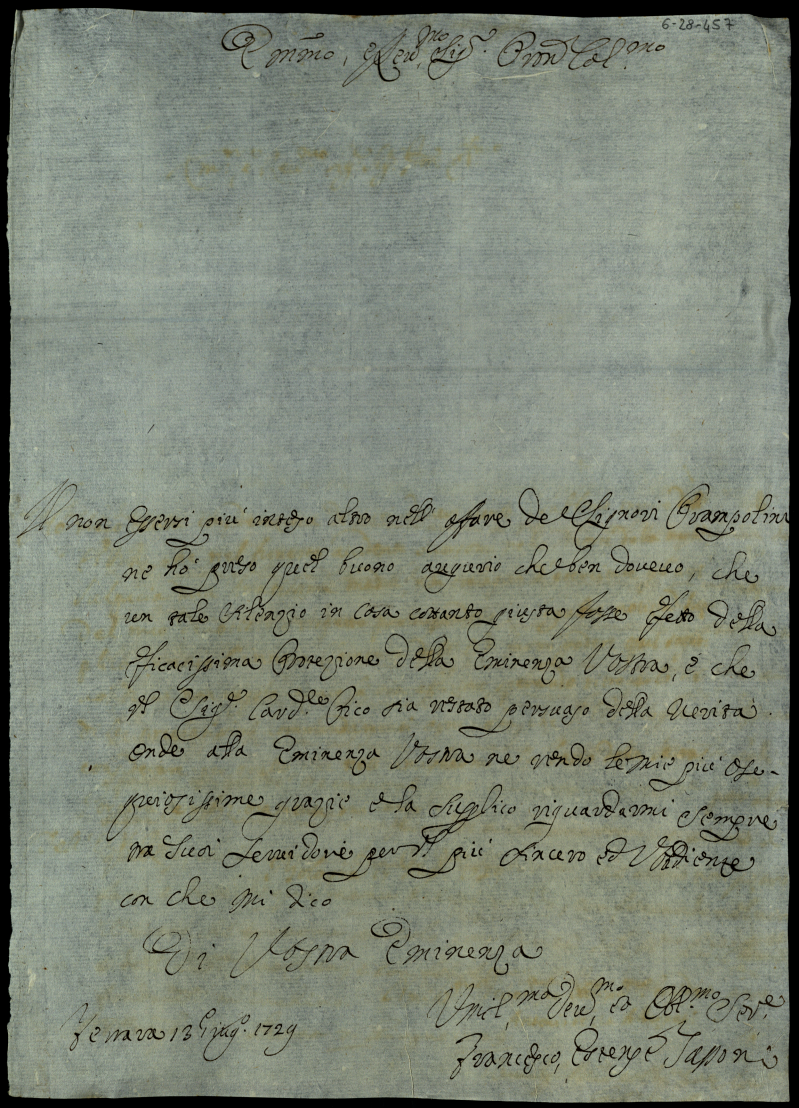 6-28-457
Emmo, e Reu.mo Sig.r Pron Col.mo
Il non essersi piu inteso altro nell' affare de Signori Grampolini
ne hò preso quel buono augurio che ben doueuo, che
un tale silenzio in cosa cottanto giusta fosse effetto della
efficacissima Protezione della Eminenza Vostra, e che
il Sig.r Card.le Pico sia restato persuaso della Uerità.
onde alla Eminenza Vostra ne rendo le mie più osse-
quiosissime grazie e la supplico riguardarmi sempre
tra suoi seruidori per il più sincero ed Vbbidiente
con che mi dico
Di Vostra Eminenza
Ferrara 13 1729
Vmil.mo Deu.mo, ed Obl.mo Ser.e
Francesco, Estense Tassoni